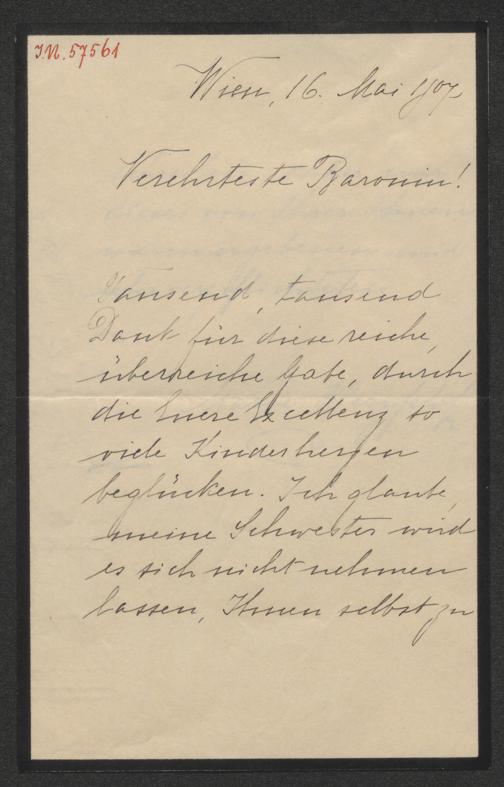 J.N. 57561
Wien, 16. Mai 1907
Verehrteste Baronin!
Tausend, tausend
Dank für diese reiche,
überreiche Gabe, durch
die Euere Excellenz so
viele Kinderherzen
beglücken. Ich glaube,
meine Schwester wird
es sich nicht nehmen
lassen, Ihnen selbst zu